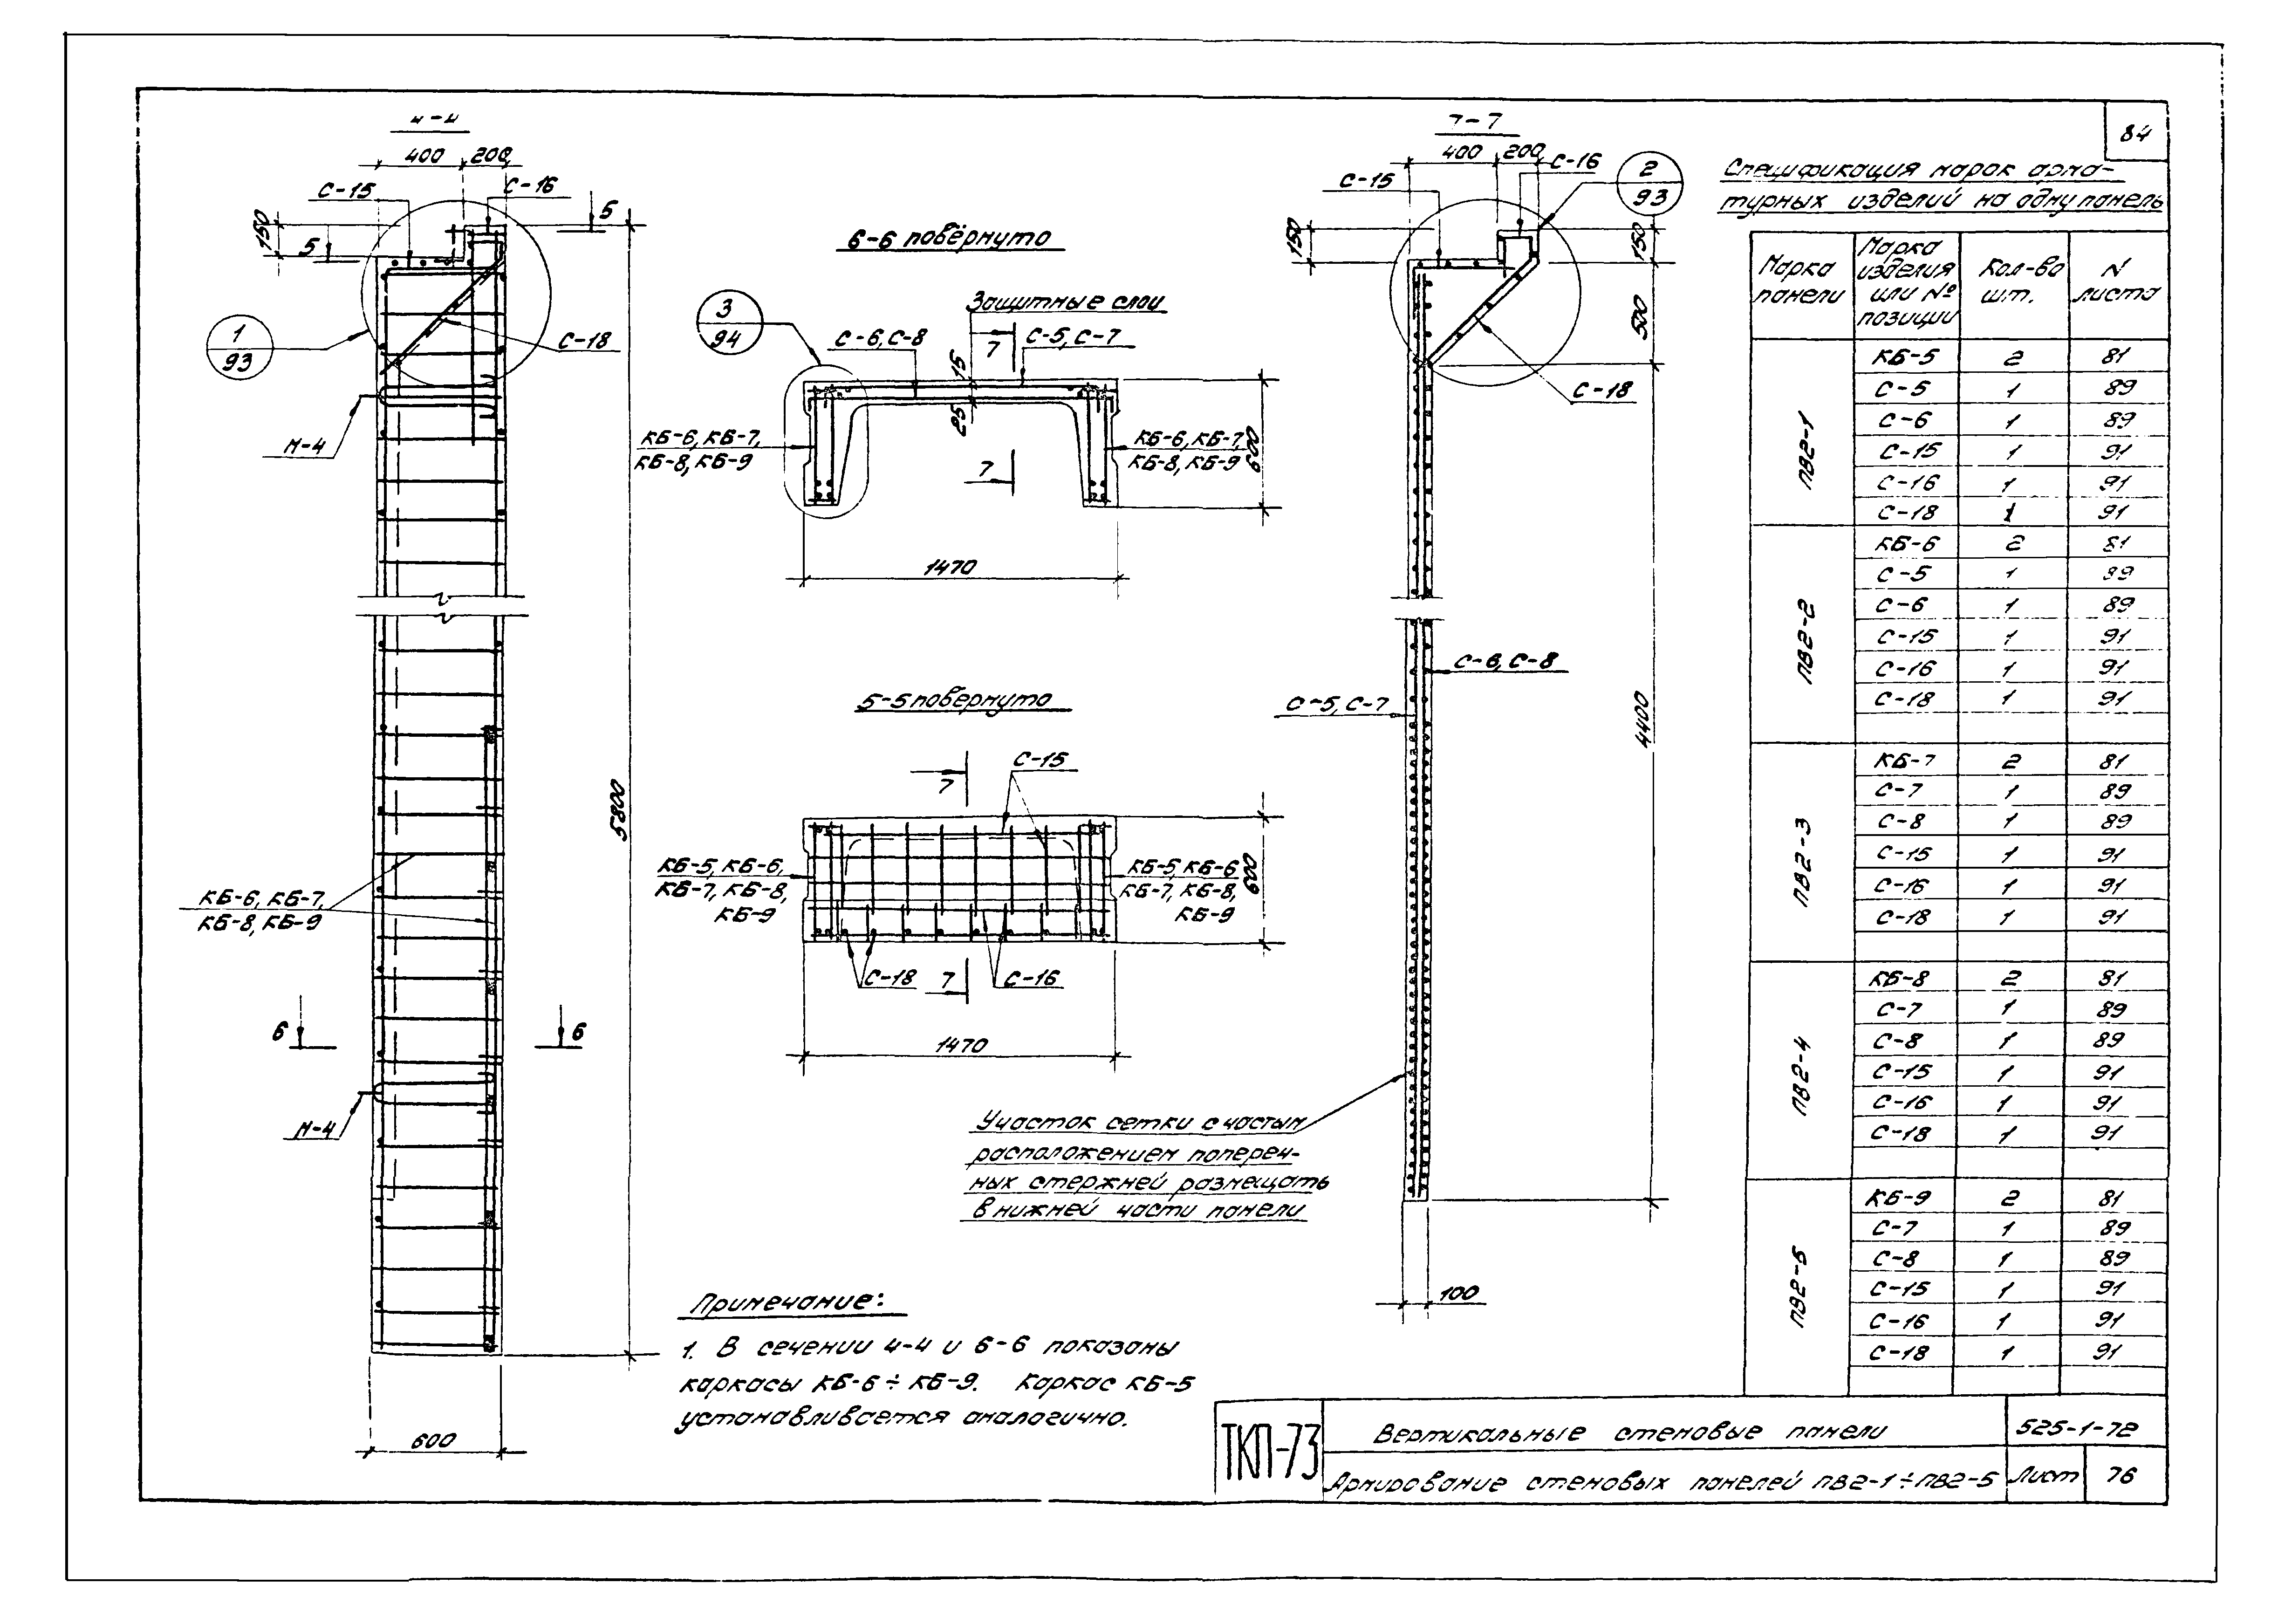 84
4-4
400 200
С-15
С-16
150
5
5
1
93
С-18
М-4
5800
КБ-6, КБ-7,
КБ-8, КБ-9
6
6
М-4
600
6-6 повёрнуто
3
94
Защитные слои
С-6, С-8
7
С-5, С-7
15
25
КБ-6, КБ-7,
КБ-8, КБ-9
КБ-6, КБ-7,
КБ-8, КБ-9
7
600
1470
5-5 повёрнуто
7
С-15
КБ-5, КБ-6,
КБ-7, КБ-8,
КБ-9
КБ-5, КБ-6
КБ-7, КБ-8,
КБ-9
600
С-18
7
С-16
1470
7-7
400 200
С-16
С-15
2
93
150
150
500
С-18
С-6, С-8
С-5, С-7
4400
Участок сетки с частым
расположением попереч-
ных стержней размещать
в нижней части панели
100
Примечание:
1. В сечении 4-4 и 6-6 показаны
каркасы КБ-6 ÷ КБ-9. Каркас КБ-5
устанавливается аналогично.
Спецификация марок арма-
турных изделий на одну панель
Марка панели
Марка изделия или № позиции
Кол-во шт.
N листа
ПВ2-1
КБ-5 2 81
С-5 1 89
С-6 1 89
С-15 1 91
С-16 1 91
С-18 1 91
ПВ2-2
КБ-6 2 81
С-5 1 89
С-6 1 89
С-15 1 91
С-16 1 91
С-18 1 91
ПВ2-3
КБ-7 2 81
С-7 1 89
С-8 1 89
С-15 1 91
С-16 1 91
С-18 1 91
ПВ2-4
КБ-8 2 81
С-7 1 89
С-8 1 89
С-15 1 91
С-16 1 91
С-18 1 91
ПВ2-5
КБ-9 2 81
С-7 1 89
С-8 1 89
С-15 1 91
С-16 1 91
С-18 1 91
ТКП-73
Вертикальные стеновые панели
525-1-72
Армирование стеновых панелей ПВ2-1÷ПВ2-5
Лист 76